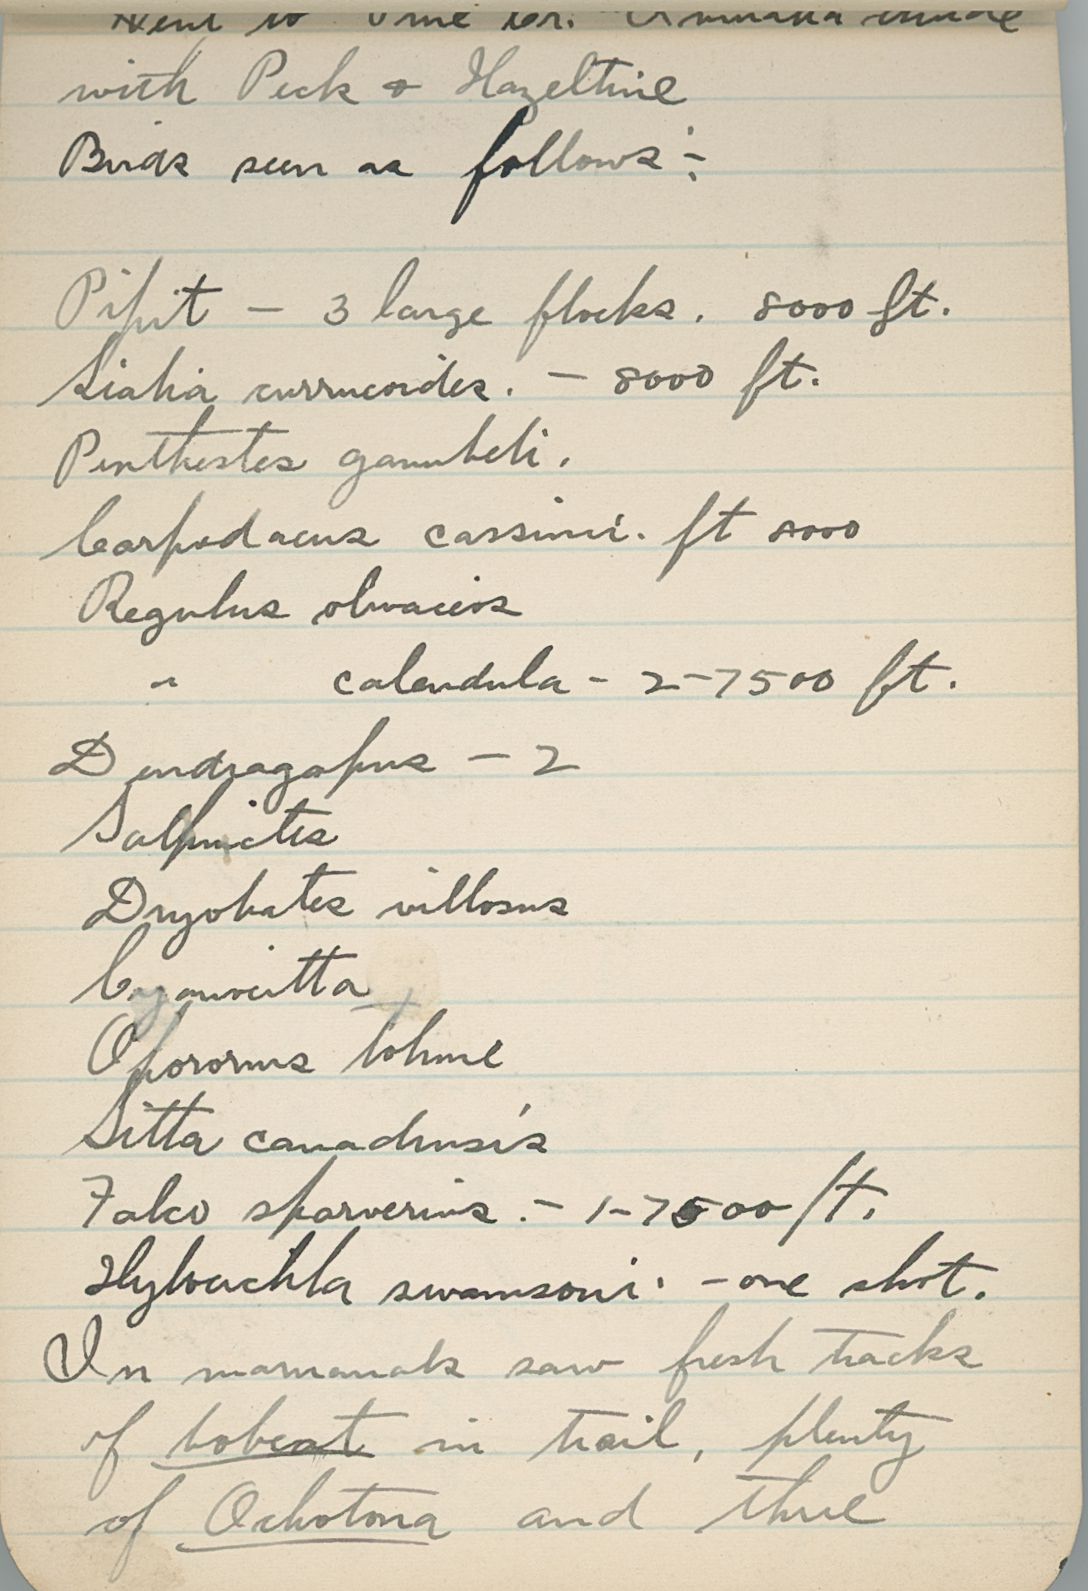 Went to Pine Cr.
with Peck & Hazeltine
Birds seen as follows:-
Pipit - 3 large flocks. 8000 ft.
Sialia currucoides. - 8000 ft.
Penthestes gambeli.
Carpodacus cassini. ft 8000
Regulus olivaceus
" calendula - 2-7500 ft.
Dendragapus - 2
Salpinctes
Dryobates villosus
Cyanocitta
Oporornis tolmie
Sitta canadensis
Falco sparverius. - 1-7500 ft.
Hylocichla swainsoni. - one shot.
In mammals saw fresh tracks
of bobcat in trail, plenty
of Ochotona and three